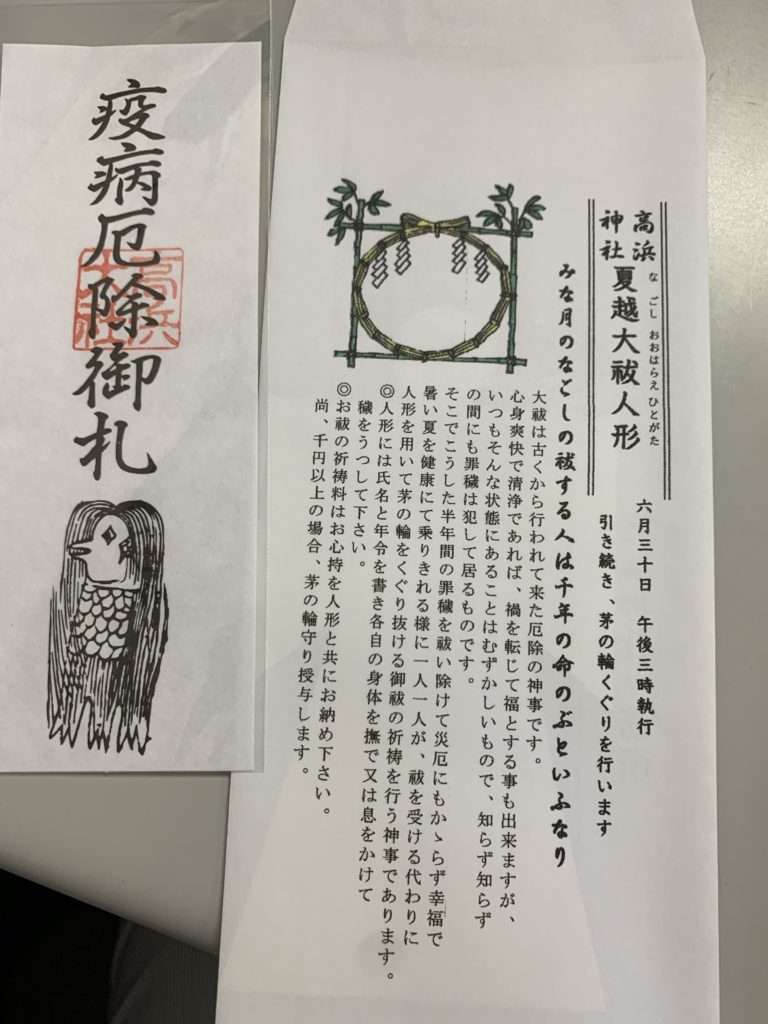 高浜
神社
夏越大祓人形
なごしおおはらえひとがた
六月三十日 午後三時執行
引き続き、茅の輪くぐりを行います
みな月のなごしの祓する人は千年の命のぶといふなり
大祓は古くから行われて来た厄除の神事です。
心身爽快で清浄であれば、禍を転じて福とする事も出来ますが、
いつもそんな状態にあることはむずかしいもので、知らず知らず
の間にも罪穢は犯して居るものです。
そこでこうした半年間の罪穢を祓い除けて災厄にもかゝらず幸福で
暑い夏を健康にて乗りきれる様に一人一人が、祓を受ける代わりに
人形を用いて茅の輪をくぐり抜ける御祓の祈祷を行う神事であります。
◎人形には氏名と年令を書き各自の身体を撫で又は息をかけて
穢をうつして下さい。
◎お祓の祈祷料はお心持を人形と共にお納め下さい。
尚、千円以上の場合、茅の輪守り授与します。
疫病厄除御札
高浜